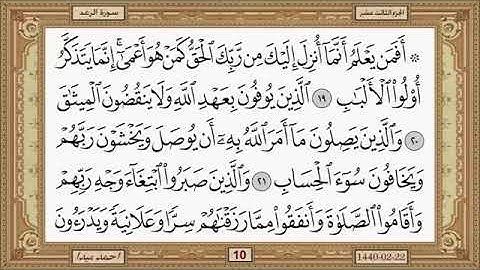 سورة الرعد
الجزء الثالث عشر
۞ أَفَمَن يَعْلَمُ أَنَّمَآ أُنزِلَ إِلَيْكَ مِن رَّبِّكَ ٱلْحَقُّ كَمَنْ هُوَ أَعْمَىٰٓ ۚ إِنَّمَا يَتَذَكَّرُ
أُو۟لُوا۟ ٱلْأَلْبَٰبِ ١٩ ٱلَّذِينَ يُوفُونَ بِعَهْدِ ٱللَّهِ وَلَا يَنقُضُونَ ٱلْمِيثَٰقَ
٢٠ وَٱلَّذِينَ يَصِلُونَ مَآ أَمَرَ ٱللَّهُ بِهِۦٓ أَن يُوصَلَ وَيَخْشَوْنَ رَبَّهُمْ
وَيَخَافُونَ سُوٓءَ ٱلْحِسَابِ ٢١ وَٱلَّذِينَ صَبَرُوا۟ ٱبْتِغَآءَ وَجْهِ رَبِّهِمْ
وَأَقَامُوا۟ ٱلصَّلَوٰةَ وَأَنفَقُوا۟ مِمَّا رَزَقْنَٰهُمْ سِرًّا وَعَلَانِيَةً وَيَدْرَءُونَ
10
1440-02-22